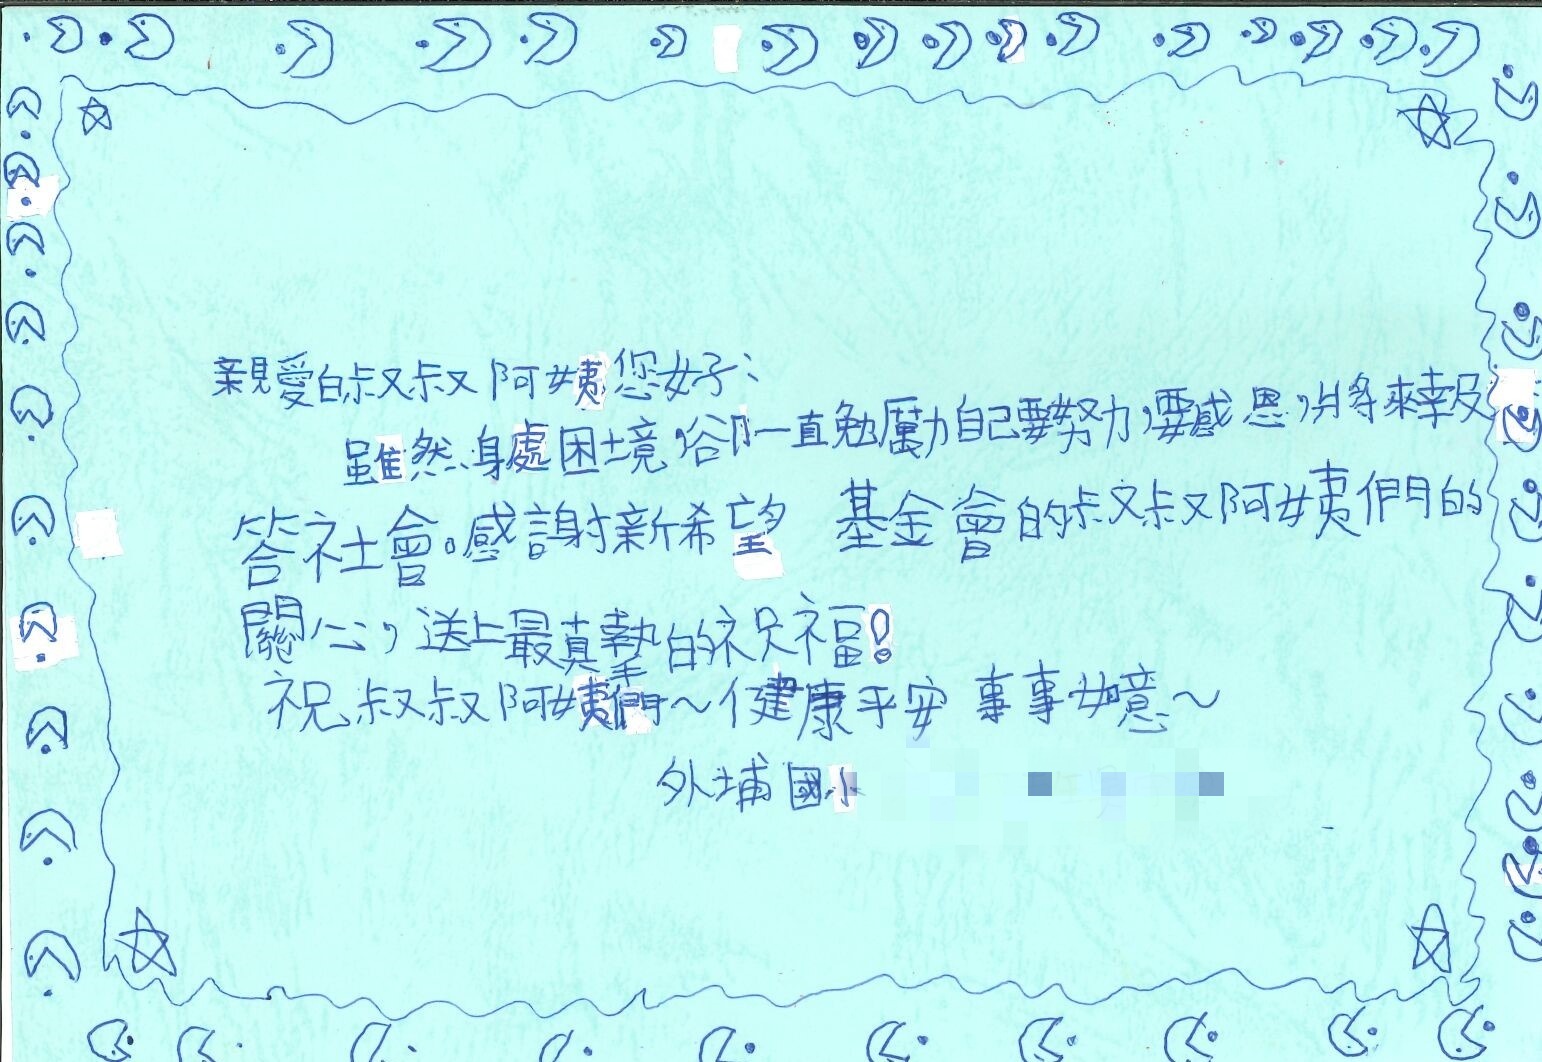 親愛的叔叔阿姨您好：
雖然身處困境，卻一直勉勵自己要努力，要感恩，將來報
答社會。感謝新希望 基金會的叔叔阿姨們的
關心，送上最真摯的祝福！
祝叔叔阿姨們～健康平安 事事如意～
外埔國小